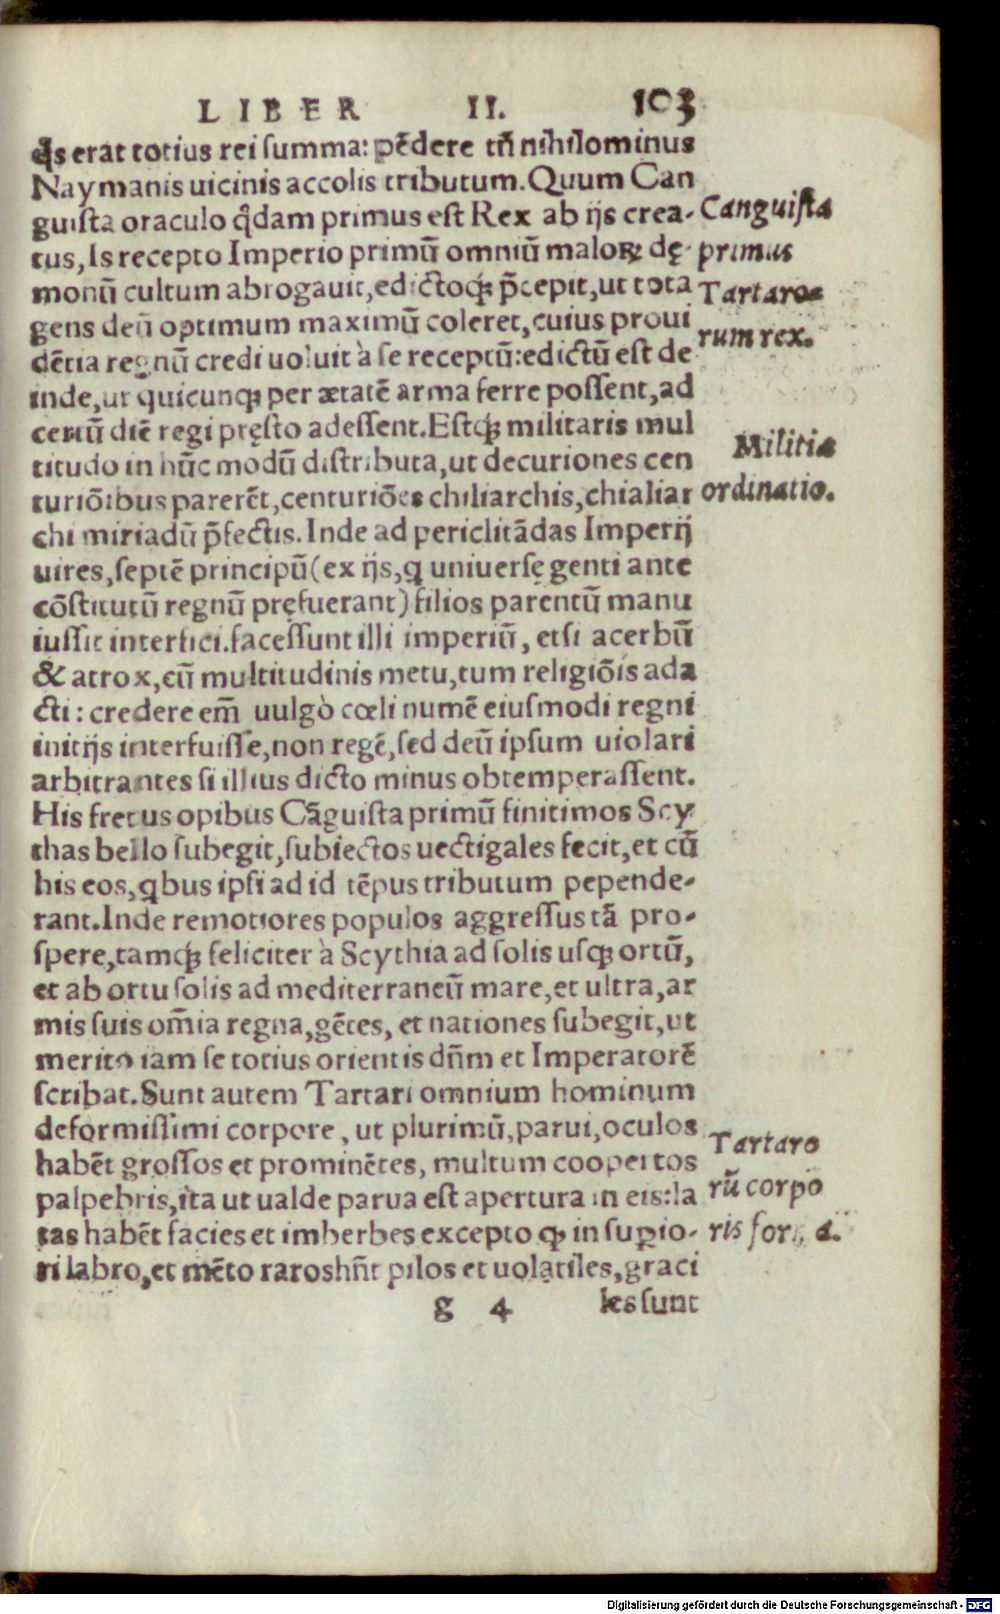 LIBER II. 103
q̃s erat totius rei summa: pẽdere tñ nihilominus
Naymanis uicinis accolis tributum. Quum Can
guista oraculo q̃dam primus est Rex ab ijs crea-
tus, Is recepto Imperio primũ omniũ maloꝝ dę-
monũ cultum abrogauit, edictoqꝫ p̃cepit, ut tota
gens deũ optimum maximũ coleret, cuius proui
dẽtia regnũ credi uoluit à se receptũ: edictũ est de
inde, ut quicunqꝫ per ætatẽ arma ferre possent, ad
certũ diẽ regi pręsto adessent. Estqꝫ militaris mul
titudo in hũc modũ distributa, ut decuriones cen
turiõibus parerẽt, centuriões chiliarchis, chialiar
chi miriadũ p̃fectis. Inde ad periclitãdas Imperij
uires, septẽ principũ (ex ijs, q uniuersę genti ante
cõstitutũ regnũ pręfuerant) filios parentũ manu
iussit interfici. facessunt illi imperiũ, etsi acerbũ
& atrox, cũ multitudinis metu, tum religiõis ada
cti: credere em̃ uulgò cœli numẽ eiusmodi regni
initijs interfuisse, non regẽ, sed deũ ipsum uiolari
arbitrantes si illius dicto minus obtemperassent.
His fretus opibus Cãguista primũ finitimos Scy
thas bello subegit, subiectos uectigales fecit, et cũ
his eos, qbus ipsi ad id tẽpus tributum pepende-
rant. Inde remotiores populos aggressus tã pro-
spere, tamqꝫ feliciter à Scythia ad solis usqꝫ ortũ,
et ab ortu solis ad mediterraneũ mare, et ultra, ar
mis suis om̃ia regna, gẽtes, et nationes subegit, ut
merito iam se totius orientis dñm et Imperatorẽ
scribat. Sunt autem Tartari omnium hominum
deformissimi corpore, ut plurimũ, parui, oculos
habẽt grossos et prominẽtes, multum coopertos
palpebris, ita ut ualde parua est apertura in eis: la
tas habẽt facies et imberbes excepto qꝫ in suꝑio-
ri labro, et mẽto raros hñt pilos et uolatiles, graci
g 4 les sunt
Canguista
primus
Tartaro-
rum rex.
Militiæ
ordinatio.
Tartaro
rũ corpo
ris for
Digitalisierung gefördert durch die Deutsche Forschungsgemeinschaft - DFG